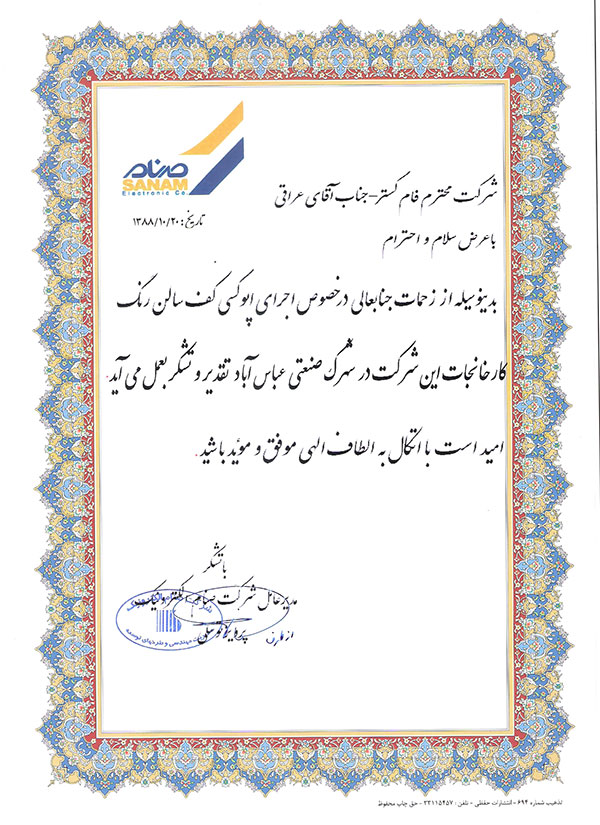 صنام
SANAM
Electronic Co.
تاریخ: ۱۳۸۸/۱۰/۲۰
شرکت محترم فام گستر-جناب آقای عراقی
باعرض سلام و احترام
بدینوسیله از زحمات جنابعالی درخصوص اجرای اپوکسی کف سالن رنگ
کارخانجات این شرکت در شهرک صنعتی عباس آباد تقدیر و تشکر بعمل می آید.
امید است با اتکال به الطاف الهی موفق و مؤید باشید.
باتشکر
مدیرعامل شرکت صنام الکترونیک
از طرف
مهندسی و طرحهای توسعه
تذهیب شماره ۶۹۴ - انتشارات حفظی - تلفن: ۳۳۱۱۵۴۵۷ - حق چاپ محفوظ